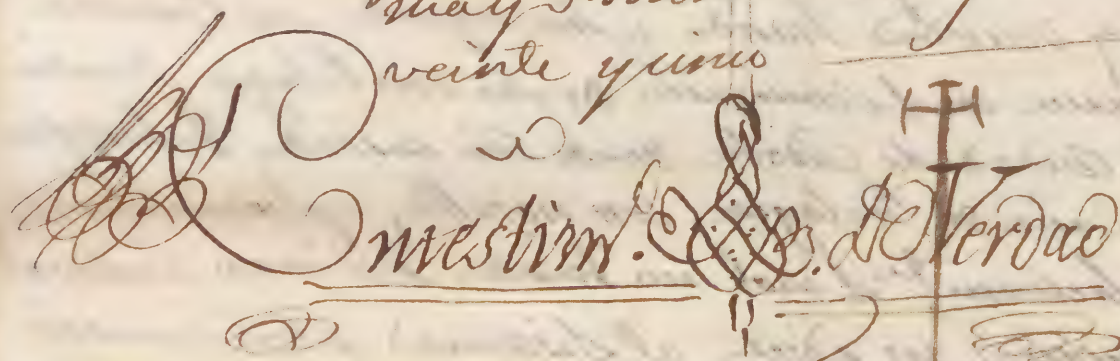 veinte y cinco
En testimº. de Verdad